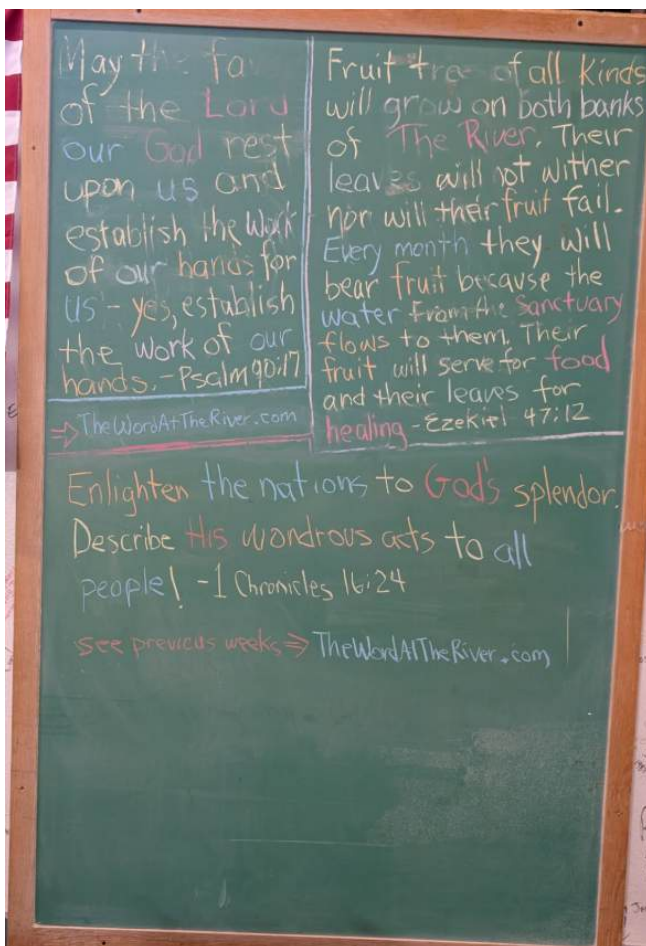 May the fa
of the Lord
our God rest
upon us and
establish the work
of our hands for
us - yes, establish
the work of our
hands. - Psalm 90:17
⇒ TheWordAtTheRiver.com
Fruit tree of all kinds
will grow on both banks
of The River. Their
leaves will not wither
nor will their fruit fail.
Every month they will
bear fruit because the
water from the Sanctuary
flows to them. Their
fruit will serve for food
and their leaves for
healing - Ezekiel 47:12
Enlighten the nations to God's splendor.
Describe His wondrous acts to all
people! - 1 Chronicles 16:24
see previous weeks ⇒ TheWordAtTheRiver.com